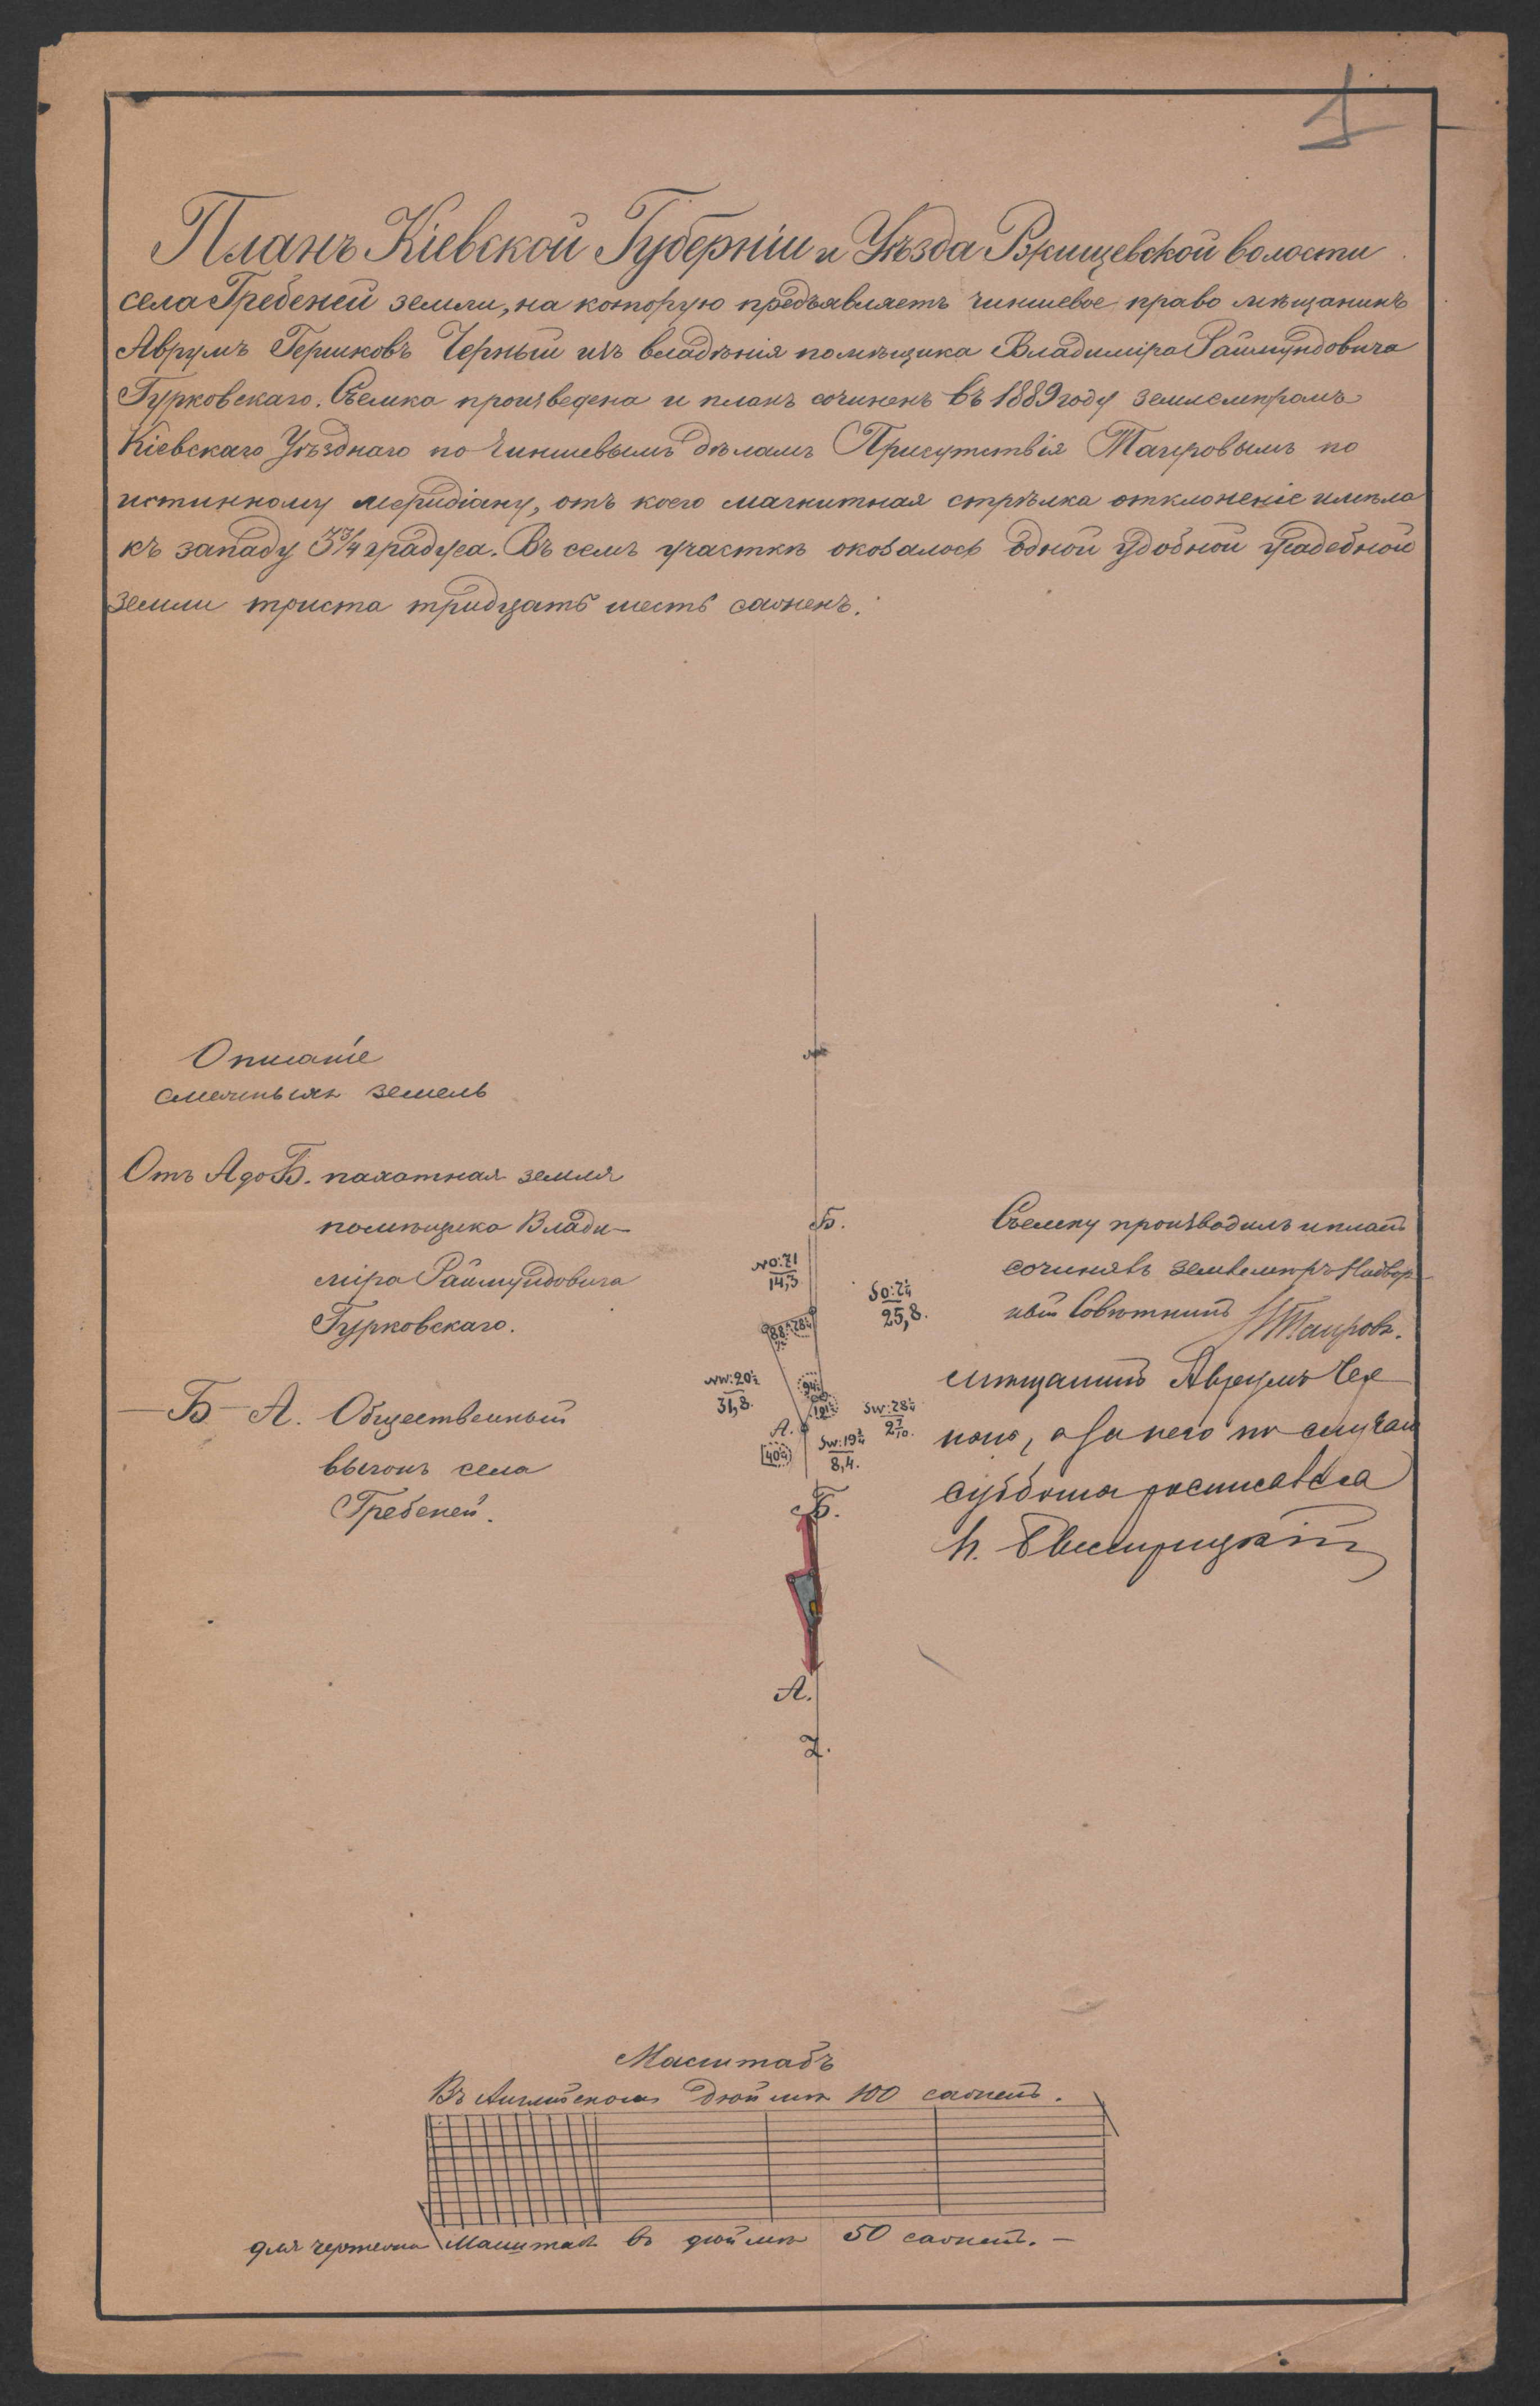 1
Планъ Кіевской Губерніи и Уѣзда Ржищевской волости
села Гребеней земли, на которую предъявляетъ чиншевое право мѣщанинъ
Аврумъ Гершковъ Черный изъ владѣнія помѣщика Владиміра Раймундовича
Гурковскаго. Съемка произведена и планъ сочиненъ въ 1889 году землемѣромъ
Кіевскаго Уѣзднаго по чиншевымъ дѣламъ Присутствія Таировымъ по
истинному меридіану, отъ коего магнитная стрѣлка отклоненіе имѣла
къ западу градуса. Въ семъ участкѣ оказалось одной удобной усадебной
земли триста тридцать шесть саженъ.
Описаніе
смежныхъ земель
Отъ А до Б. пахатная земля
помѣщика Влади-
міра Раймундовича
Гурковскаго.
Б - А. Общественный
выгонъ села
Гребеней.
Б.
NO: 71
14,3
SO: 2¼
25,8.
88½
78¼
NW: 20½
31,8.
SW: 28¼
2 7/10.
А.
SW: 19¾
8,4.
Б.
А.
Съемку производилъ и планъ
сочинялъ землемѣръ Надвор-
ный Совѣтникъ Таировъ.
мѣщанинъ Аврумъ Чер
ный, а за него по случаю
субботы росписался
Масштабъ
Въ Англійскомъ дюймѣ 100 сажень.
для чертежа Масштабъ въ дюймѣ 50 сажень.-